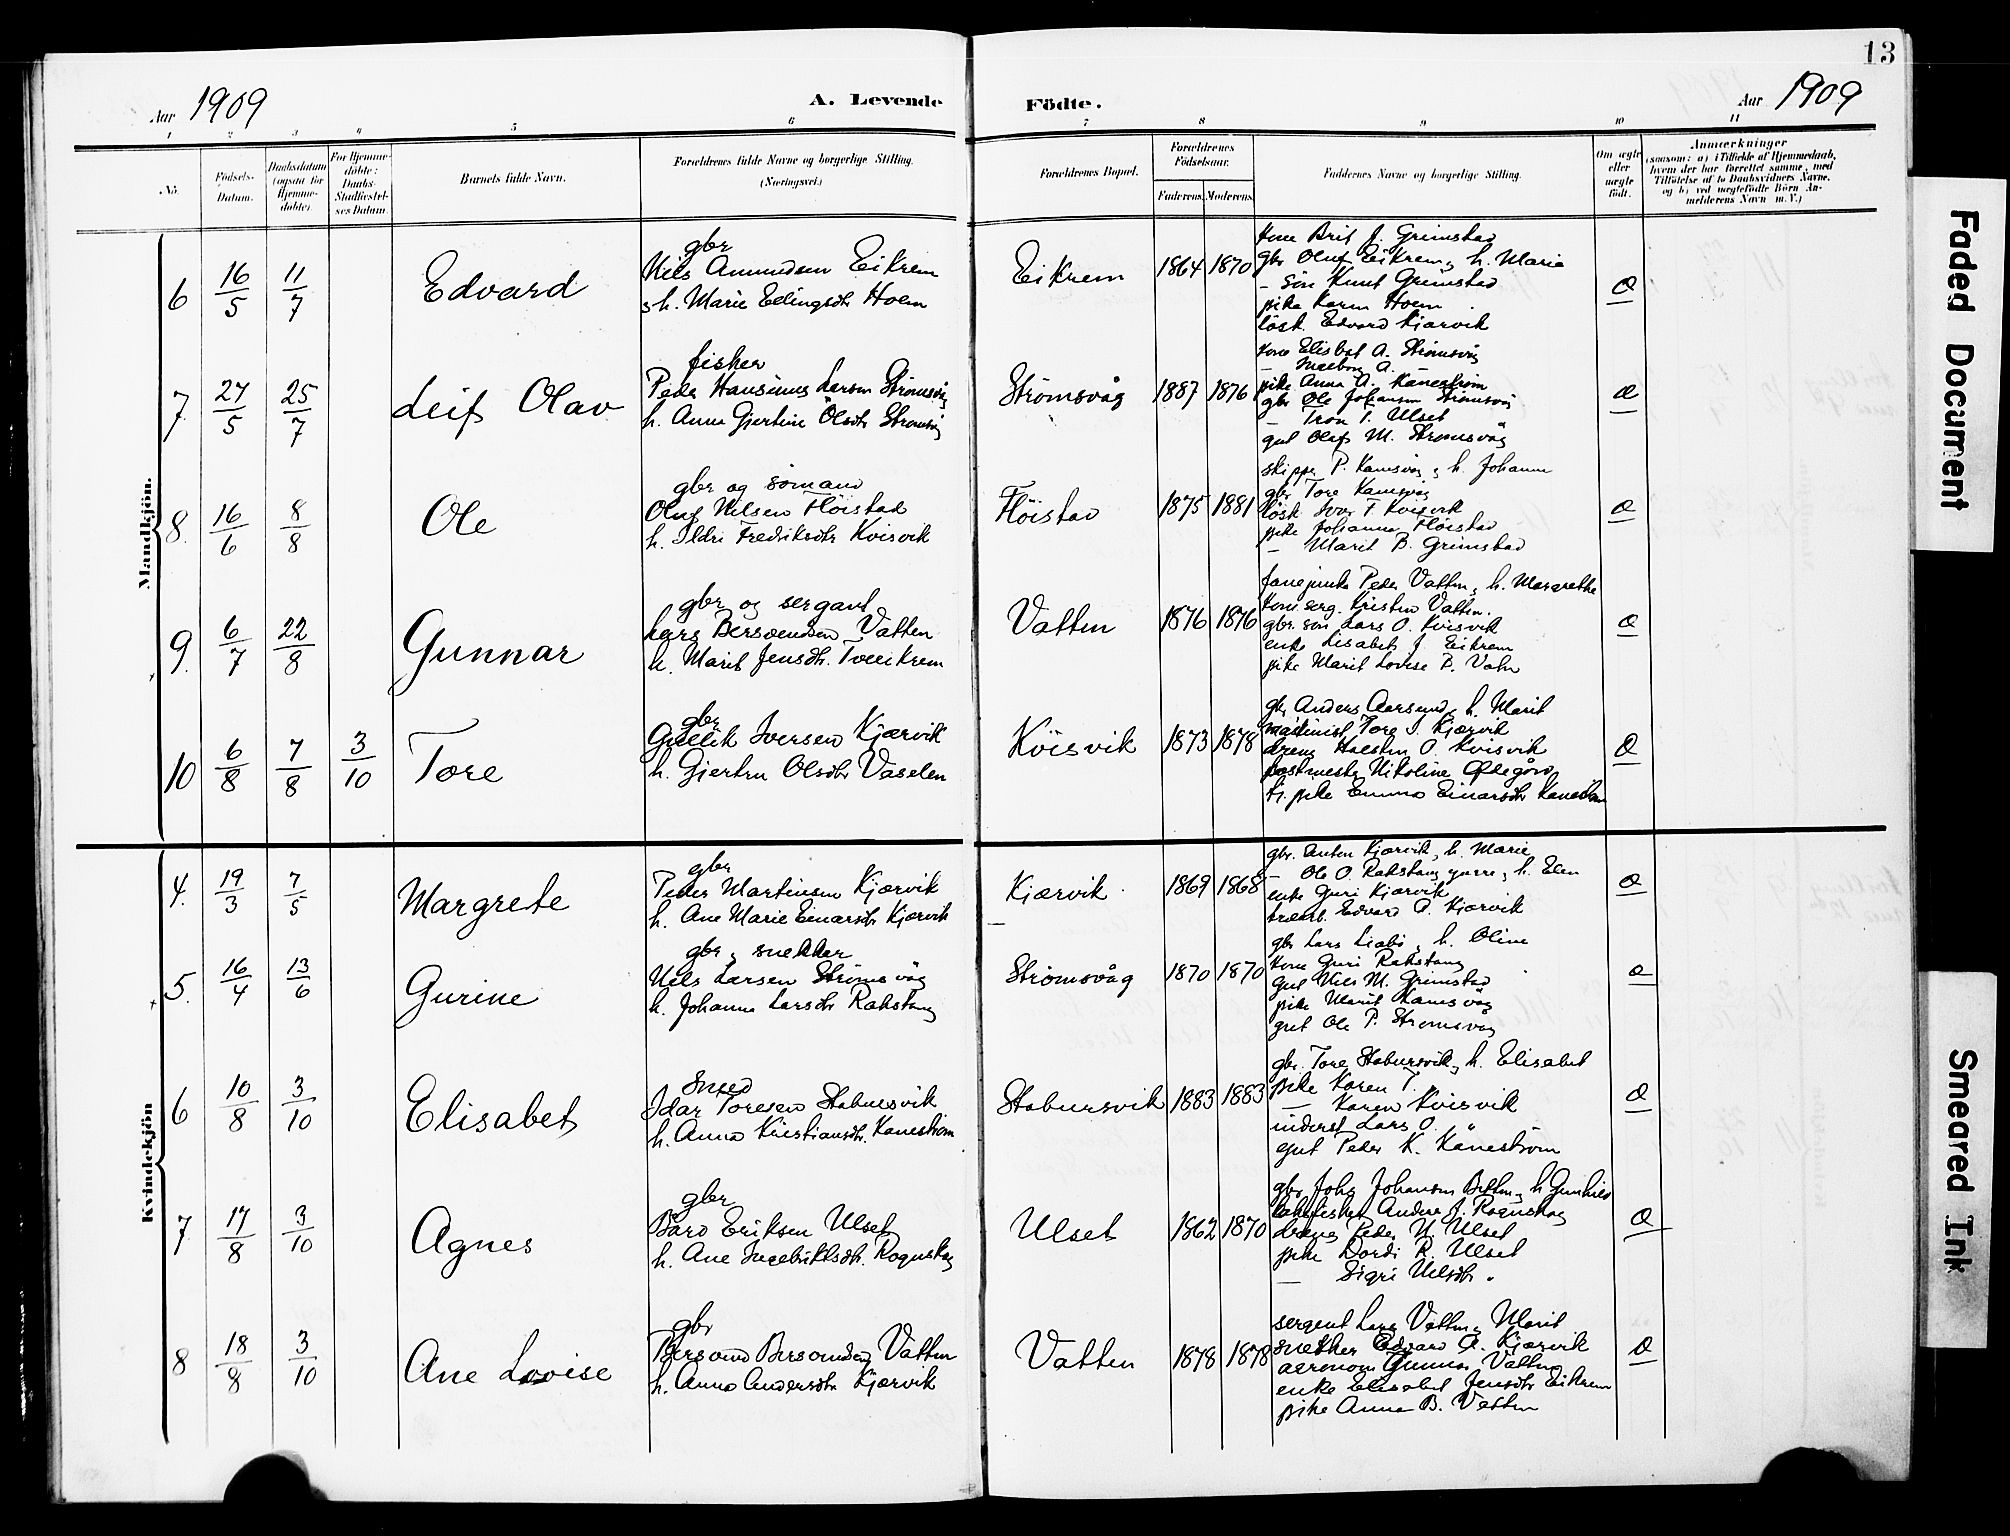 13
Aar 1909
A. Levende
Födte.
Aar 1909
1 2 3 4 5 6 7 8 9 10 11
No.
Födsels-
Datum.
Daabsdatum
(ogsaa for
Hjemme-
döbte).
For Hjemme-
döbte:
Daabs-
Stadfæstel-
ses Datum.
Barnets fulde Navn.
Forældrenes fulde Navne og borgerlige Stilling.
(Næringsvei.)
Forældrenes Bopæl.
Forældrenes
Födselsaar.
Faderens.
Moderens.
Faddernes Navne og borgerlige Stilling.
Om ægte
eller
uægte
födt.
Anmærkninger
(saasom: a) i Tilfælde af Hjemmedaab,
hvem der har forrettet samme, med
Tilföielse af to Daabsvidners Navne,
og b) ved uægtefödte Börn An-
melderens Navn m. V.)
Mandkjön.
6
16/5
11/7
Edvard
gbr
Nils Amundsen Eikrem
h. Marie Edlingsdtr Hoem
Eikrem
1864
1870
kone Brit J. Grimstad
gbr Oluf Eikrem, h. Marie
- sön Knut Grimstad
pike Karen Hoem
lösk. Edvard Kjærvik
7
27/5
25/7
Leif Olav
fisher
Peder Hansinus Larsen Strømsvåg
h. Anna Gjertine Olsdtr Strømsvåg
Strømsvåg
1887
1876
kone Elisbet A. Strømsvåg
- Ingebor A.
pike Anna A. Kanestrøm
gbr Ole Johansen Strømsvåg
- Tron T. Ulset
gut Olaf M. Strømsvåg
8.
16/6
8/8
Ole
gbr og sömand
Oluf Nilsen Flöistad
h. Ildri Fredriksdtr Kvisvik
Flöistad
1875
1881
skipper P. Kamsvåg, h. Johanna
gbr Tore Kamsvåg
lösk Ivar F. Kvisvik
pike Johanna Flöistad
- Marit B. Grimstad
9.
6/7
22/8
Gunnar
gbr og sergant
Lars Bersvendsen Vatten
h. Marit Jensdtr. Tveeikrem
Vatten
1876
1876
fanejunker Peder Vatten, h. Margrethe
kom.serg. Kristen Vatten.
gbr. sön Lars O. Kvisvik
enke Lisabet J. Eikrem
pike Marit Lovise P. Vatn
10
6/8
7/8
3/10
Tore
gbr
Gullik Iversen Kjærvik
h. Gjertru Olsdtr Vaselen
Kvisvik
1873
1878
gbr Anders Aarsund, h. Marit
maskinist Tore I. Kjærvik
dreng Halsten O. Kvisvik
postmester Nikoline Ødegård
tj. pike Emma Einarsdtr Kanestrøm
Kvindekjön
4.
19/3
7/5
Margrete
gbr
Peder Martinsen Kjærvik
h. Ane Marie Einarsdtr Kjærvik
Kjærvik
1869
1868
gbr. Anton Kjærvik, h. Marie
- Ole O. Rakstang, h. Elen
enke Guri Kjærvik
Edvard P. Kjærvik
5.
16/4
13/6
Gurine
gbr, snekker
Nils Larsen Strømsvåg
h. Johanna Larsdtr Rakstang
Strømsvåg
1870
1870
gbr Lars Liabö, h. Oline
kone Guri Rakstang
gut Nils M. Grimstad
pike Marit Kamsvåg
gut Ole P. Strømsvåg
6
10/8
3/10
Elisabet
Smed
Idar Toresen Stabursvik
h. Anna Kristiansdtr. Kanestrøm
Stabursvik
1883
1883
gbr. Tore Stabursvik, h. Elisabet
pike Karen T.
- Karen Kvisvik
inderst Lars O. "
gut Peder K. Kanestrøm
7
17/8
3/10
Agnes
gbr
Bård Eriksen Ulset
h. Ane Ingebriktsdtr. Rognskog
Ulset
1862
1870
gbr John Johansen Botten, h Gunhild
Anders J. Rognskog
dreng Peder N. Ulset
pike Dordi R. Ulset
- Sigri Nilsdtr "
8
18/8
3/10
Ane Lovise
gbr
Bersvend Bersvendsen Vatten
h. Anna Andersdtr Kjærvik
Vatten
1878
1878
sergent Lars Vatten, Marit
snekker Edvard A. Kjærvik
agronom Gunnar Vatten
enke Elisabet Jensdtr Eikrem
pike Anna B. Vatten
Faded Document
Smeared Ink